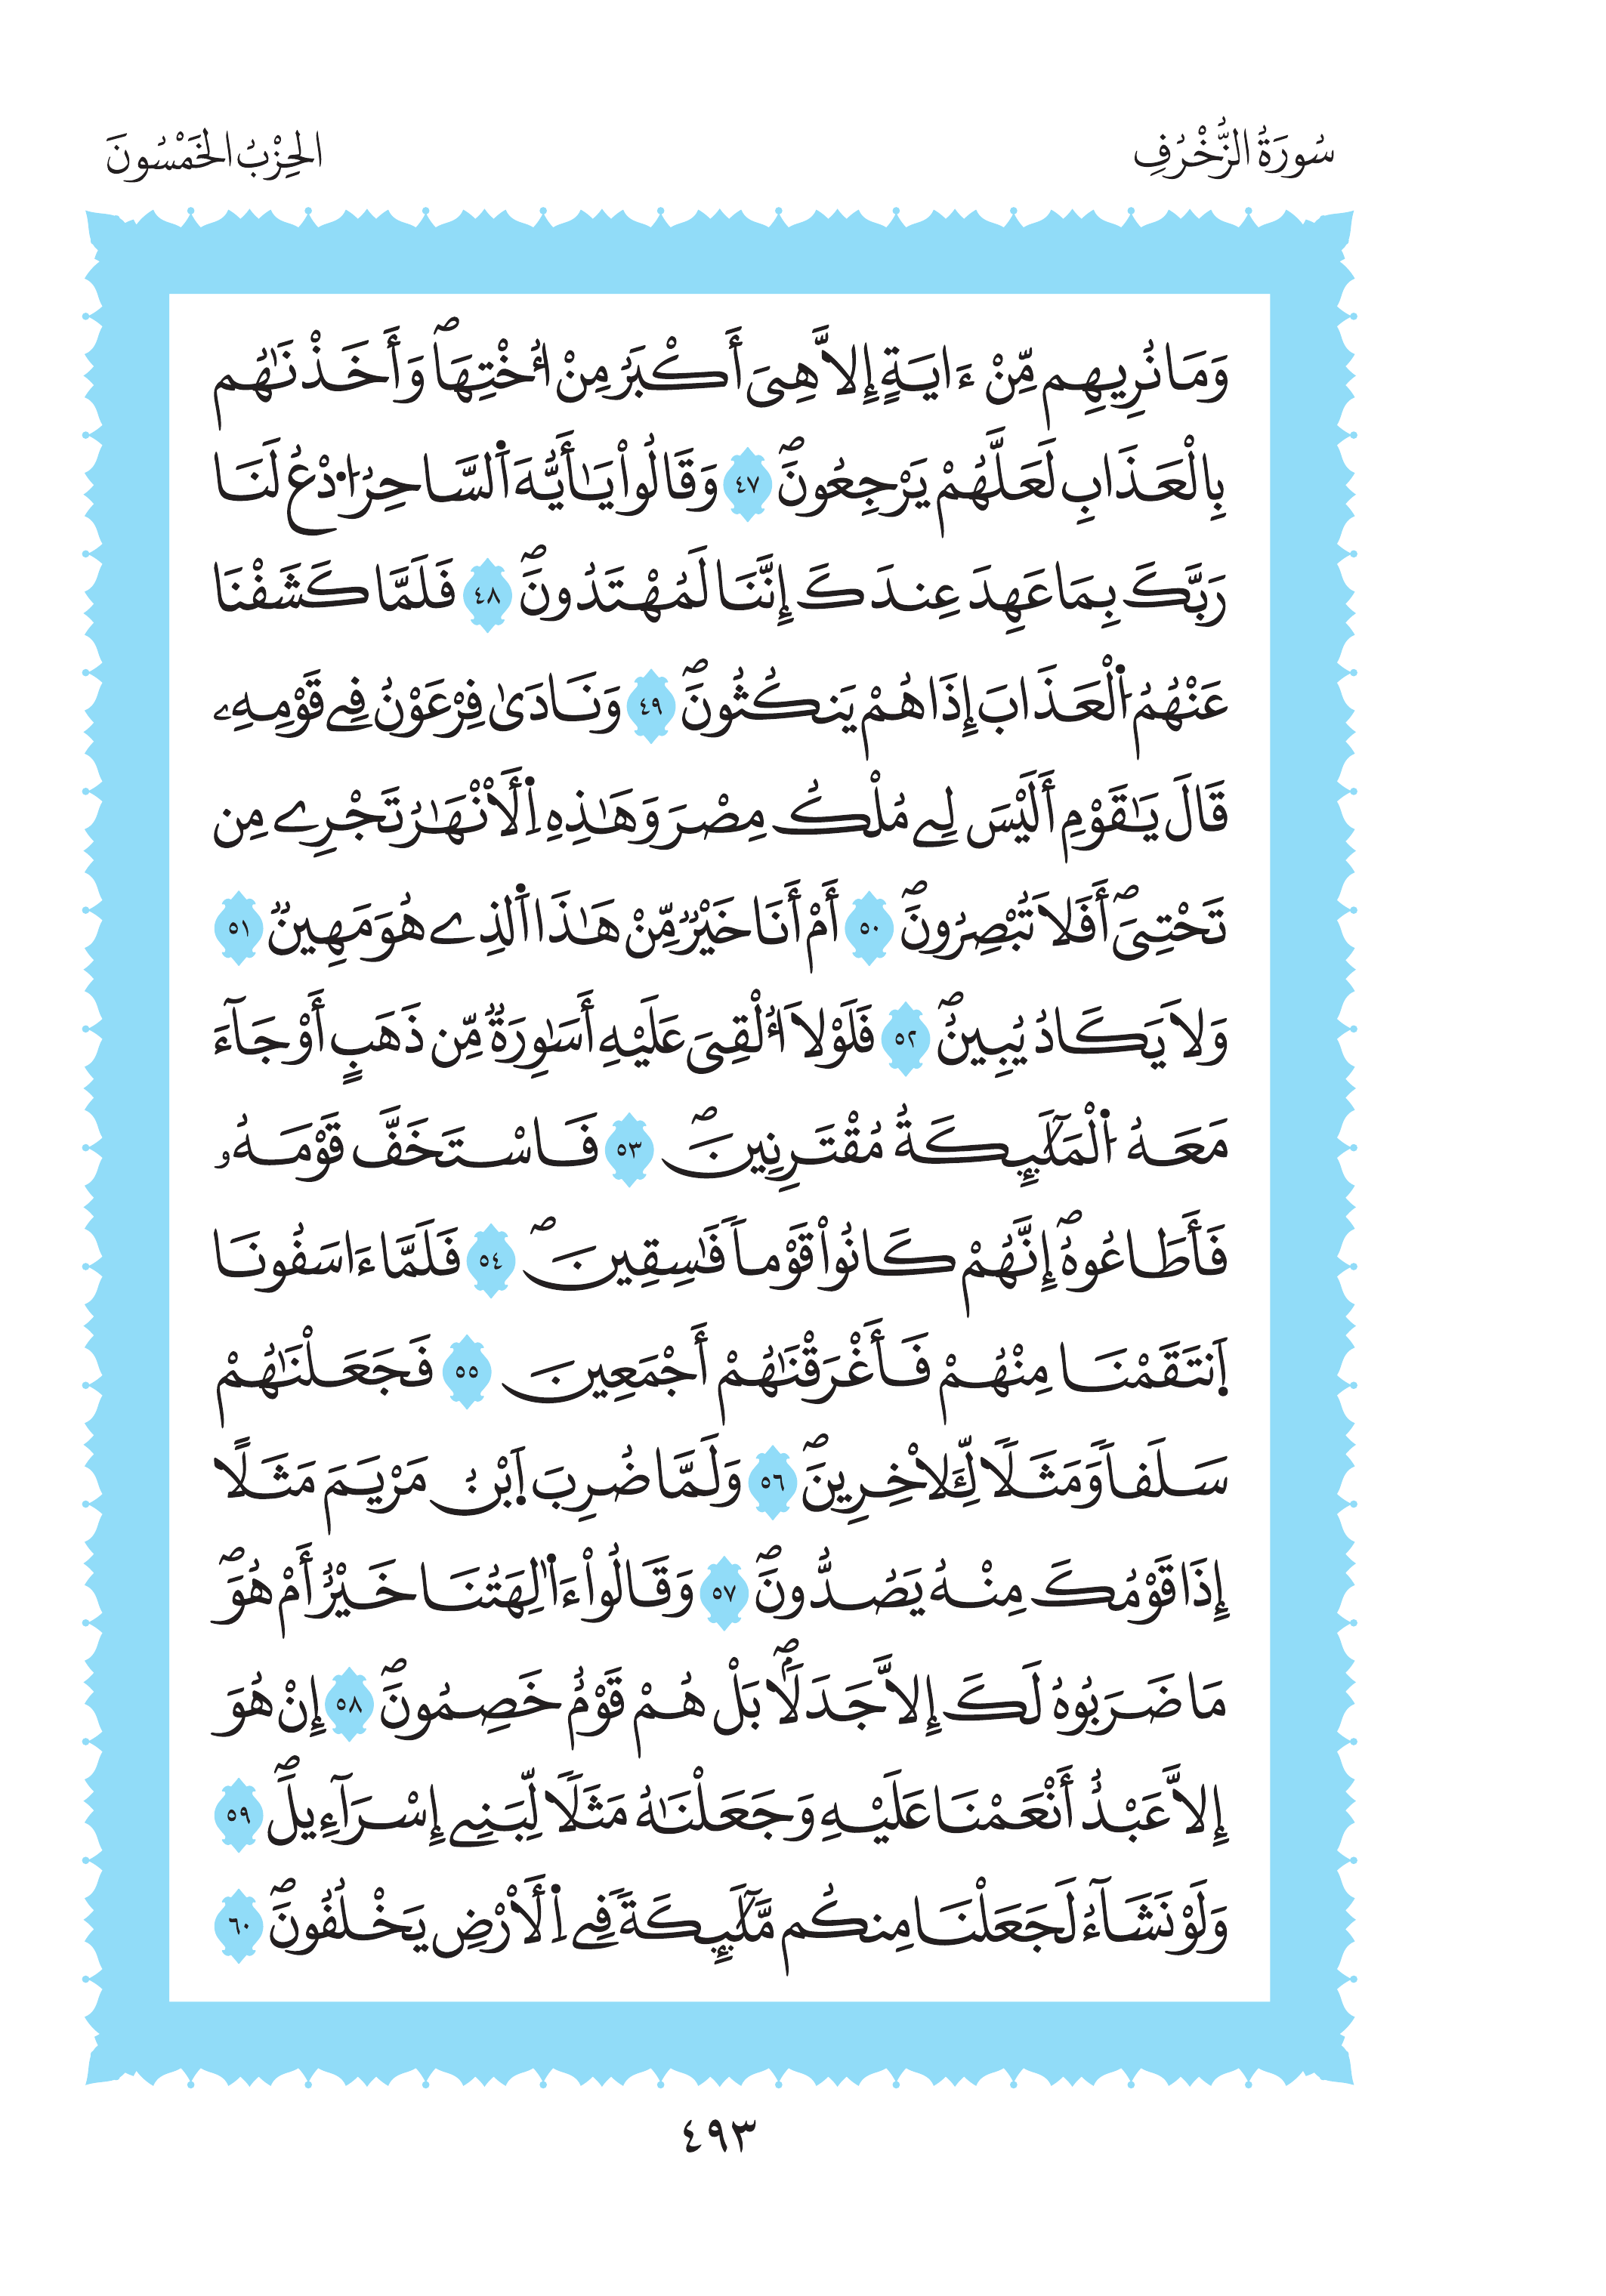 سُورَةُ الزُّخْرُفِ
الحِزْبُ الخَمْسُونَ
وَمَا نُرِيهِم مِّنْ ءَايَةٍ إِلاَّ هِيَ أَكْبَرُ مِنْ اُخْتِهَاۖ وَأَخَذْنَٰهُم
بِالْعَذَابِ لَعَلَّهُمْ يَرْجِعُونَۖ ٤٧ وَقَالُواْ يَٰأَيُّهَ اَ۬لسَّاحِرُ ا۟دْعُ لَنَا
رَبَّكَ بِمَا عَهِدَ عِندَكَ إِنَّنَا لَمُهْتَدُونَۖ ٤٨ فَلَمَّا كَشَفْنَا
عَنْهُمُ اُ۬لْعَذَابَ إِذَا هُمْ يَنكُثُونَۖ ٤٩ وَنَادَىٰ فِرْعَوْنُ فِے قَوْمِهِۦ
قَالَ يَٰقَوْمِ أَلَيْسَ لِے مُلْكُ مِصْرَ وَهَٰذِهِ اِ۬لَانْهَٰرُ تَجْرِے مِن
تَحْتِيَۖ أَفَلاَ تُبْصِرُونَۖ ٥٠ أَمْ أَنَا خَيْرٌ مِّنْ هَٰذَا اَ۬لذِے هُوَ مَهِينٌ ٥١
وَلاَ يَكَادُ يُبِينُۖ ٥٢ فَلَوْلاَ أُلْقِيَ عَلَيْهِ أَسَٰوِرَةٌ مِّن ذَهَبٍ أَوْ جَآءَ
مَعَهُ اُ۬لْمَلَٰٓئِكَةُ مُقْتَرِنِينَۖ ٥٣ فَاسْتَخَفَّ قَوْمَهُۥ
فَأَطَاعُوهُۖ إِنَّهُمْ كَانُواْ قَوْماٗ فَٰسِقِينَۖ ٥٤ فَلَمَّا ءَاسَفُونَا
اَ۪نتَقَمْنَا مِنْهُمْ فَأَغْرَقْنَٰهُمْ أَجْمَعِينَ ٥٥ فَجَعَلْنَٰهُمْ
سَلَفاٗ وَمَثَلاٗ لِّلَاخِرِينَۖ ٥٦ وَلَمَّا ضُرِبَ اَ۪بْنُ مَرْيَمَ مَثَلاً
إِذَا قَوْمُكَ مِنْهُ يَصُدُّونَۖ ٥٧ وَقَالُواْ ءَاٰ۬لِهَتُنَا خَيْرٌ أَمْ هُوَۖ
مَا ضَرَبُوهُ لَكَ إِلاَّ جَدَلاَۢۖ بَلْ هُمْ قَوْمٌ خَصِمُونَۖ ٥٨ إِنْ هُوَ
إِلاَّ عَبْدٌ أَنْعَمْنَا عَلَيْهِ وَجَعَلْنَٰهُ مَثَلاٗ لِّبَنِے إِسْرَآءِيلَۖ ٥٩
وَلَوْ نَشَآءُ لَجَعَلْنَا مِنكُم مَّلَٰٓئِكَةٗ فِے اِ۬لَارْضِ يَخْلُفُونَۖ ٦٠
٤٩٣